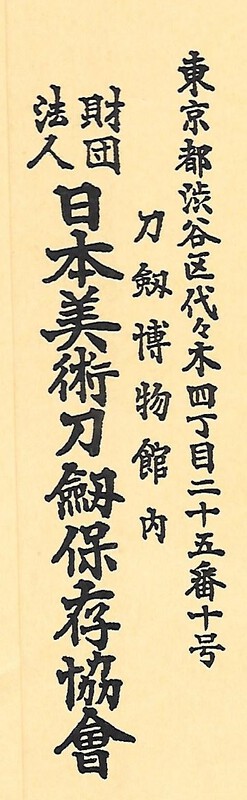 東京都渋谷区代々木四丁目二十五番十号
刀劔博物館内
財団法人
日本美術刀劔保存協會